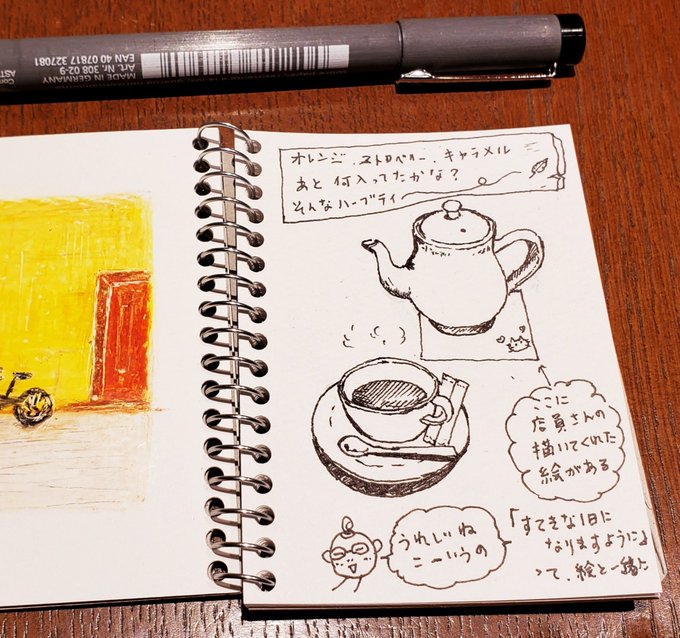 Con
AST
EAN 40 07817 327081
Art. Nr. 308 02-9
MADE IN GERMANY
オレンジ、ストロベリー、キャラメル
あと何入ってたかな？
そんなハーブティ
ここに
店員さんの
描いてくれた
絵がある
うれしいね
こーいうの
「すてきな1日に
なりますように」
って、絵と一緒に